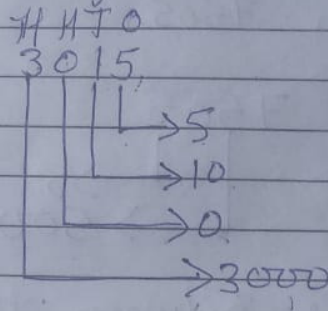 H H T O
3 0 1 5
5
10
0
3000